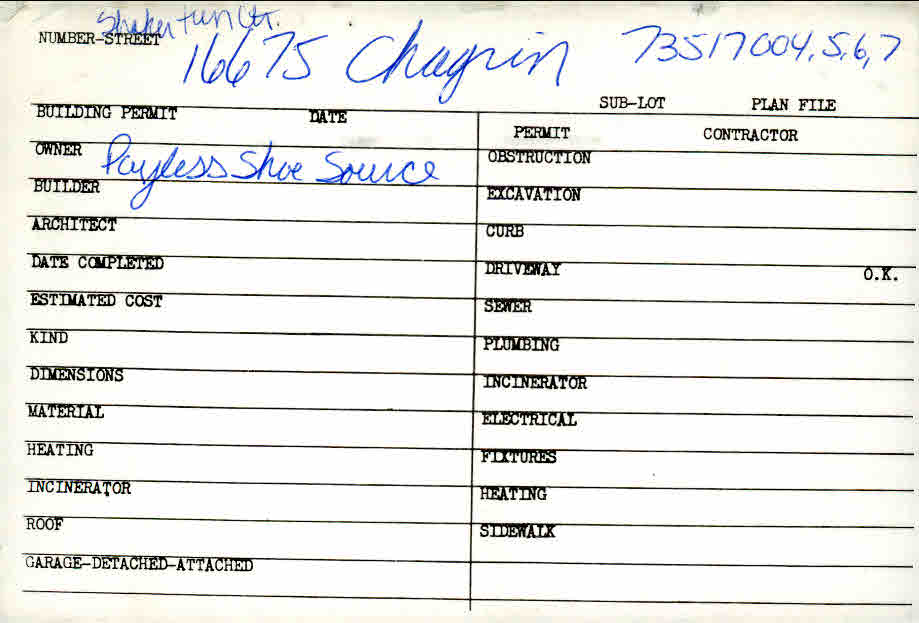 Shaker Twn Ctr.
NUMBER-STREET
16675 Chagrin 73517004,5,6,7
SUB-LOT PLAN FILE
BUILDING PERMIT DATE
PERMIT CONTRACTOR
OWNER Payless Shoe Source
OBSTRUCTION
BUILDER
EXCAVATION
ARCHITECT
CURB
DATE COMPLETED
DRIVEWAY O.K.
ESTIMATED COST
SEWER
KIND
PLUMBING
DIMENSIONS
INCINERATOR
MATERIAL
ELECTRICAL
HEATING
FIXTURES
INCINERATOR
HEATING
ROOF
SIDEWALK
GARAGE-DETACHED-ATTACHED